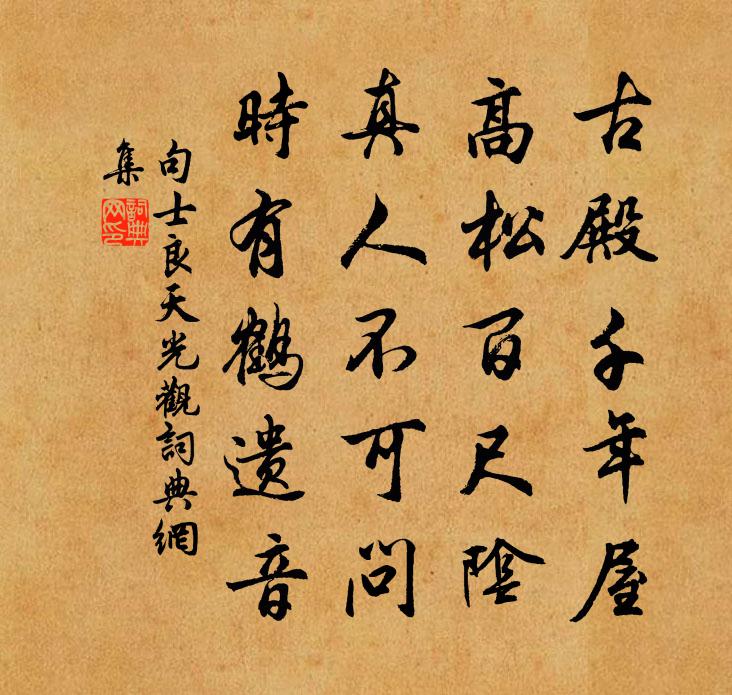 古殿千年屋
高松百尺陰
真人不可問
時有鶴遺音
句士良天光觀詞典網
集
詞典
网印